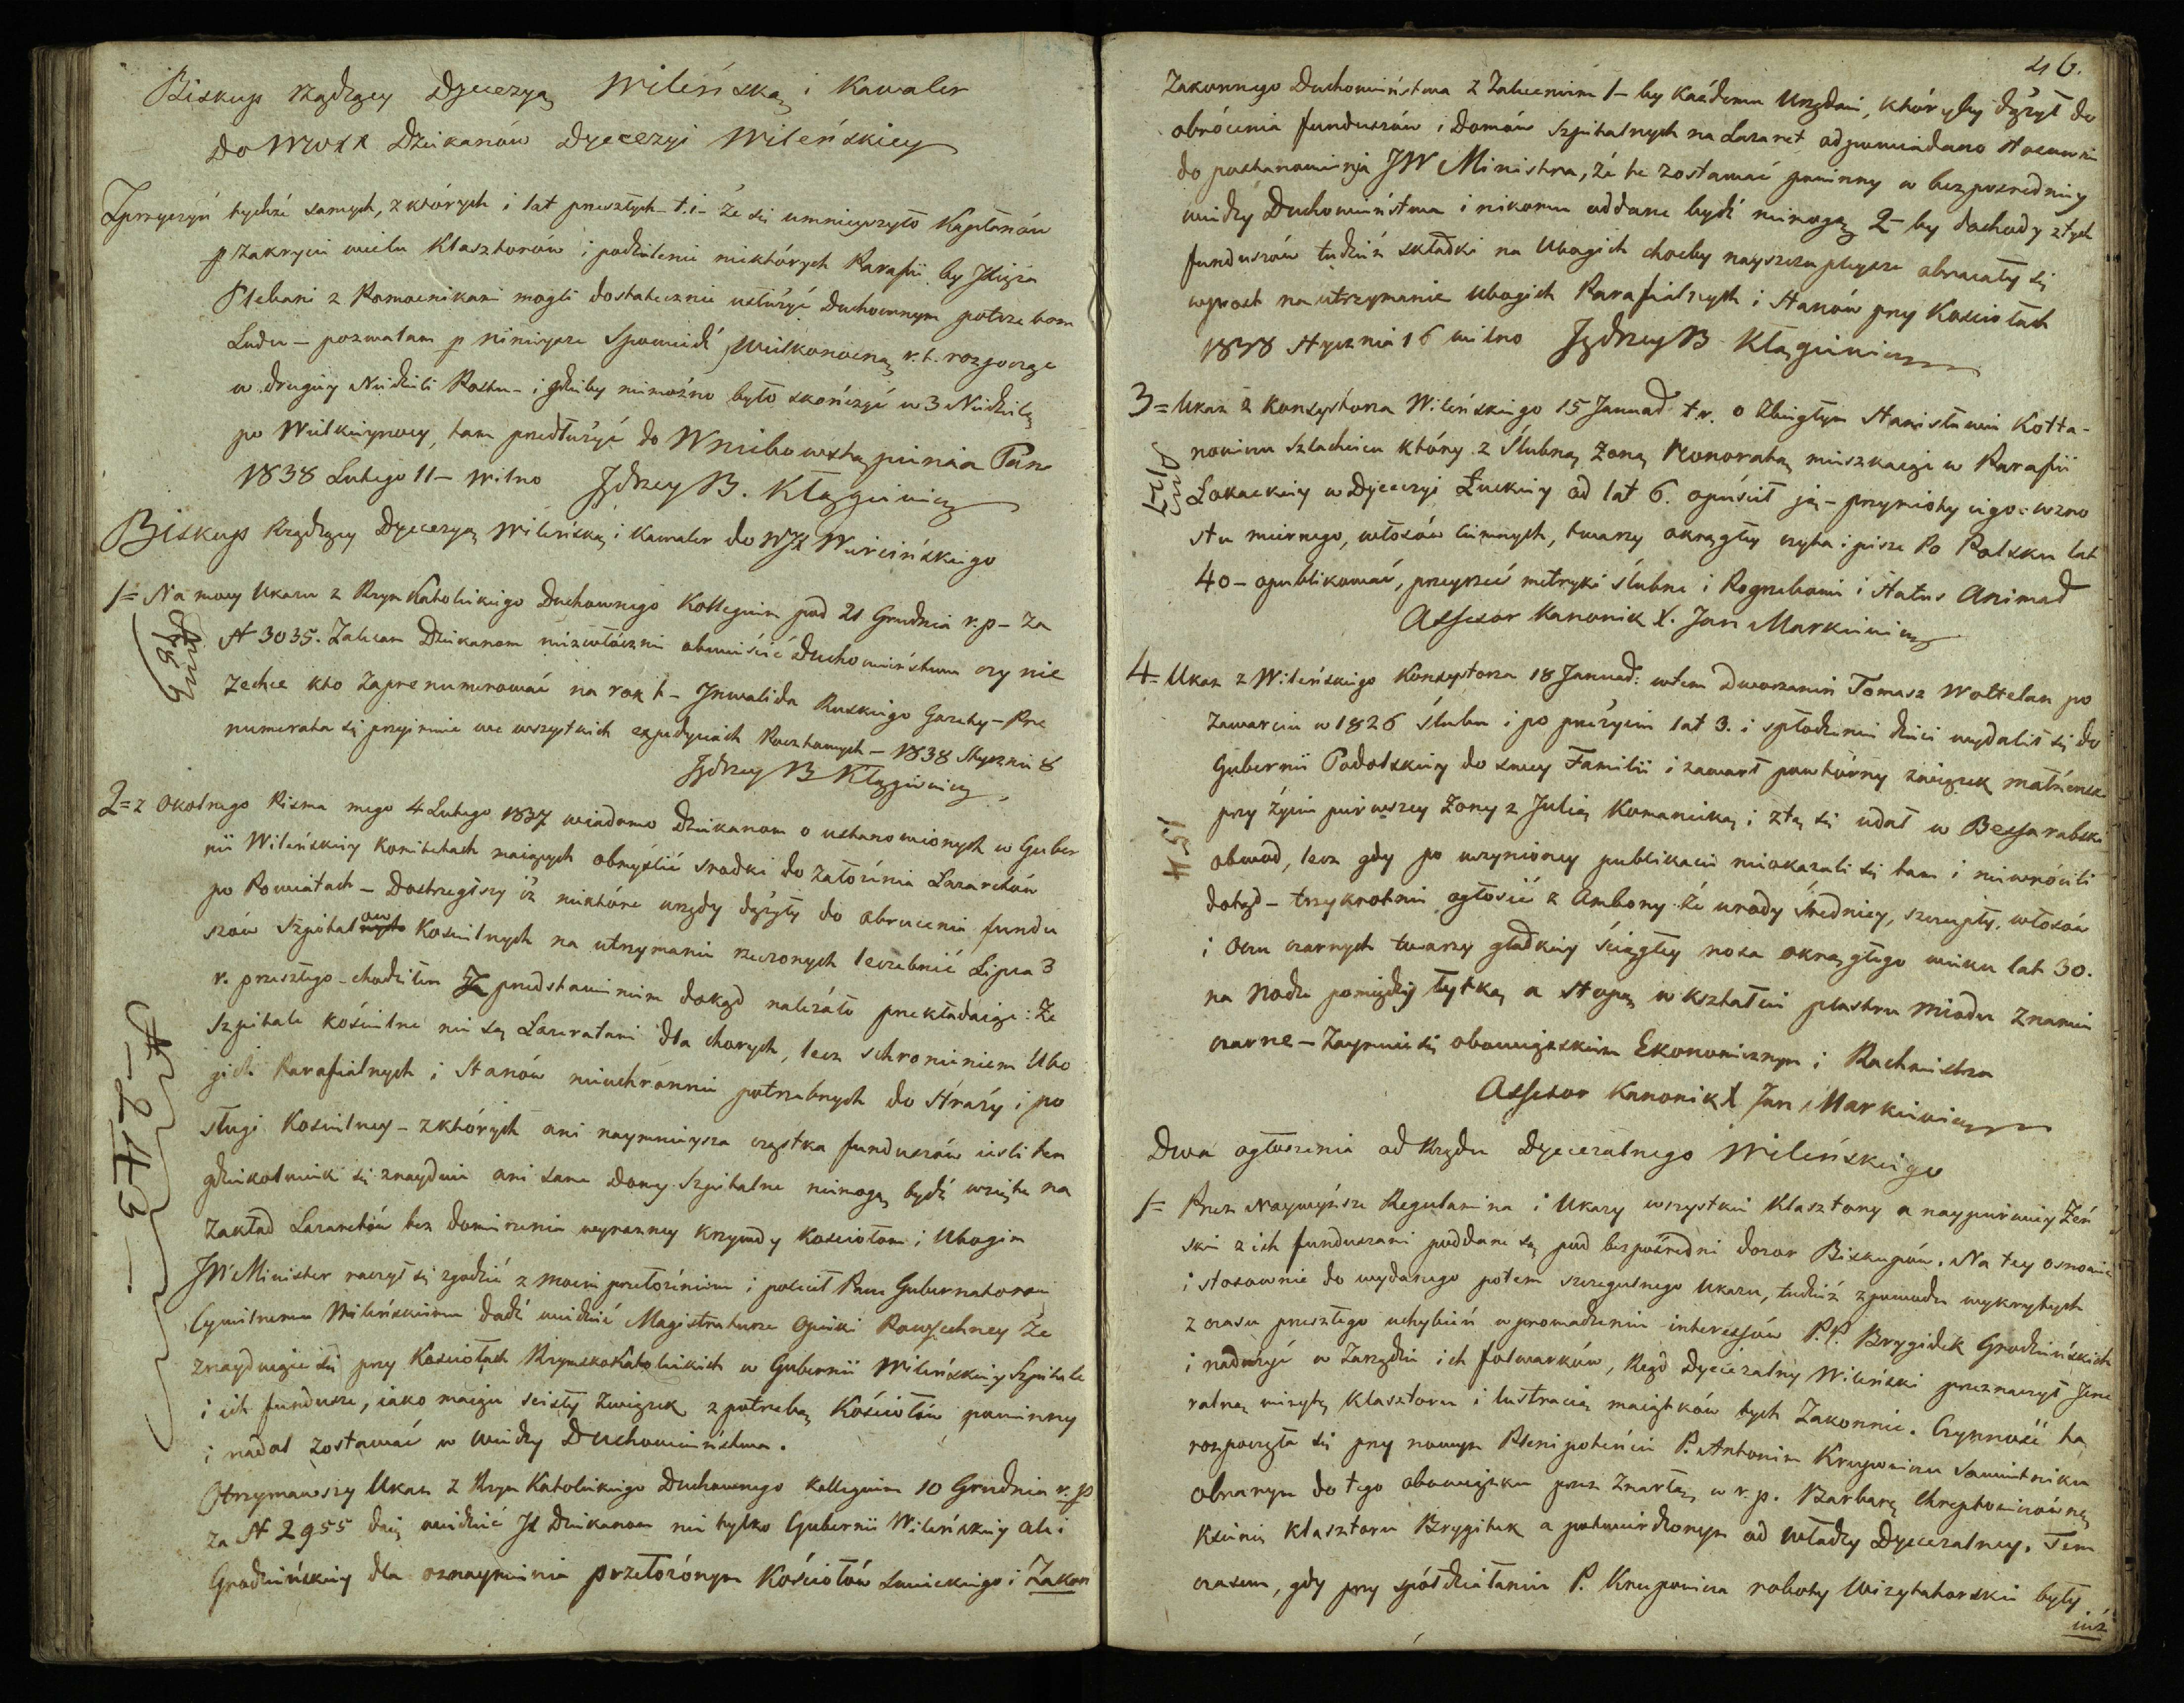 Biskup rządzący Dyecezyą Wileńską i Kawaler
Do WWXX Dziekanów Dyecezyi Wileńskiey
Zprzyczyn tychże samych, z których i lat przeszłych t.i. że się umnieyszyło Kapłanów
p zakryciu wielu Klasztorów i podzielenie niektórych Parafii by Xięża
Plebani z Pomocnikami mogli dostatecznie usłużyć duchownym potrzebom
Ludu – pozwalam p ninieysze Spowiedź Wielkonocną r.t. rozpocząc
w drugiey Niedzieli Postu – i gdzieby niemożno było skończyć w 3 Niedzielę
po Wielkieynocy, tam przedłużyć do Wniebowstąpienia Pań
1838 Lutego 11 – Wilno Jędrzey B. Kłągiewicz
Biskup Rządzący Dyecezyą Wileńską i Kawaler do WJX Wierzińskiego
1= Na mocy Ukazu z Rzym Katolickiego Duchownego Kollegium pod 21 Grudnia r.p – za
N 3035. Zalecam Dziekanom niezwłócznie obwieścić Duchowieństwu czy nie
zechce kto zaprenumerować na rok t – Jnwalida Ruskiego Gazety – Pre
numerata się przyimuie we wszystkich expedyciach Pocztowych – 1838 Stycznia 8
Jędrzey B Kłągiewicz
2= z okolnego Pisma mego 4 Lutego 1837 wiadomo Dziekanom o ustanowionych w Guber
nii Wileńskiey Komitetach maiących obmyślić srodki do założenia Lazaretów
po Powiatach – Dostrzegłszy iż niektóre urzędy dążyły do obrucenia fundu
szów Szpitalnych Kościelnych na utrzymanie rzeczonych leczebnic Lipca 3
r. przeszłego – chodziłem Z przedstawieniem dokąd należało przekładaiąc: że
Szpitale kościelne nie są Lazaretami dla chorych, lecz schronieniem Ubo
gich Parafialnych i Stanów nieuchronnie potrzebnych do Straży i po
sługi Kościelney – z których ani naymnieysza cząstka funduszów iesli ten
gdziekolwiek się znayduie ani same Domy Szpitalne niemogą bydź wzięte na
zakład Lazaretów bez domierzenia wyrazney krzywdy Kosciołom i Ubogim
JW Minister raczył się zgodzić z moim przełożeniem i polecił Panu Gubernatorowi
Cywilnemu Wileńskiemu dadź wiedzieć Magistraturze Opieki Powszechney że
znayduiące się przy Kosciołach Rzymsko Katolickich w Gubernii Wileńskiey Szpitale
i ich fundusze, iako maiące scisły związek z potrzebą Kosciołów powinny
i nadal zostawać w wiedzy Duchowieństwa.
Otrzymawszy Ukaz z Rzym Katolickiego Duchownego Kollegium 10 Grudnia r.p
za N 2955 daię wiedzieć JX Dziekanom nie tylko Gubernii Wileńskiey ale i
Grodzieńskiey dla oznaymienia przełożonym Kościołów Swieckiego i Zakon
N – 243 –
46.
Zakonnego Duchowieństwa z zaleceniem 1– by każdemu Urzędowi, któryby dążył do
obrócenia funduszów i Domów Szpitalnych na Lazaret odpowiadano stosownie
do postanowienia JW Ministra, że te zostawać powinny w bezpośredniey
wiedzy Duchowieństwa i nikomu oddane bydź niemogą 2– by dochody z tych
funduszów tudzież składki na Ubogich choćby nayszczuplejsze obracały się
wprost na utrzymanie Ubogich Parafialnych i Stanów przy Kosciołach
1838 Stycznia 16 Wilno Jędrzey B Kłągiewicz
3= Ukaz z Konsystorza Wileńskiego 15 Januar t.r. o Zbiegłym Stanisławie Kołła-
nowiczu Szlachcicu który z Slubną żoną Honoratą mieszkaiąc w Parafii
Łokackiey w Dyecezyi Łuckiey od lat 6. opuścił ją – przymioty iego: wzro
stu miernego, włosów ciemnych, twarzy okrągłey czyta i pisze Po Polsku lat
40 – opublikować, przeyrzeć metryki ślubne i Pogrzebowe i Status Animar
Assesor Kanonik X. Jan Markiewicz
4= Ukaz z Wileńskiego Konsystorza 18 Januar: wtem Dworzanin Tomasz Wottelan po
zawarciu w 1826 ślubu i po przeżyciu lat 3. i spłodzeniu dzieci wydalił się do
Gubernii Podolskiey do swey Familii i zawarł powtórny związek małżeńsk
przy życiu pierwszey żony z Julią Komanicką i z tą się udał w Bessarabski
obwod, lecz gdy po uczynioney publikacii nieokazali się tam i niewrócili
dotąd – trzykrotnie ogłosić z Ambony że urody średniey, szczupły, włosów
i oczu czarnych twarzy gładkiey ściągłey nosa okrągłego wieku lat 30.
na nodze pomiędzy łytką a stopą w kształcie plastru miodu znamie
czarne – Zaymuie się obowiązkiem Ekonomicznym i Rachmistrza
Assesor Kanonik X Jan Markiewicz
N 51
Dwa ogłoszenia od Rządu Dyecezalnego Wileńskiego
1= Przez Naywyższe Regulamina i Ukazy wszystkie Klasztory a naypierwiey Żeń
skie z ich funduszami poddane są pod bezpośredni dozor Biskupów. Na tey osnowie
i stosownie do wydanego potem szczegulnego Ukazu, tudzież z powodu wykrytych
z czasu przeszłego uchybień w prowadzeniu interessów P.P. Brygidek Grodzieńskich
i nadużyć w Zarządzie ich folwarków, Rząd Dyecezalny Wileński przeznaczył Jene
ralną wizytę Klasztoru i lustracią maiątków tych Zakonnic. Czynność ta
rozpoczęła się przy nowym Plenipotencie P. Antonim Krupowiczu Sowietniku
obranym do tego obowiązku przez zmarłą w r.p. Barbarę Chreptowiczównę
Ksienię Klasztoru Brygitek a potwierdzonym od władzy Dyecezalney. Tem
czasem, gdy przy spółdziałaniu P. Krupowicza roboty Wizytatorskie były
iuż